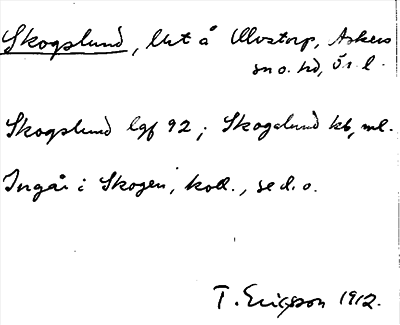 Skogslund, lht å Ulvstorp, Askers
sn o. hd, Ör. l.
Skogslund lgf 92; Skogslund kb, ml.
Ingår i Skogen, koll., se d. o.
T. Ericsson 1912.